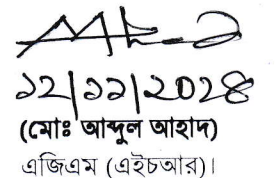 ১২|১১|২০২৪
(মোঃ আব্দুল আহাদ)
এজিএম (এইচআর)।